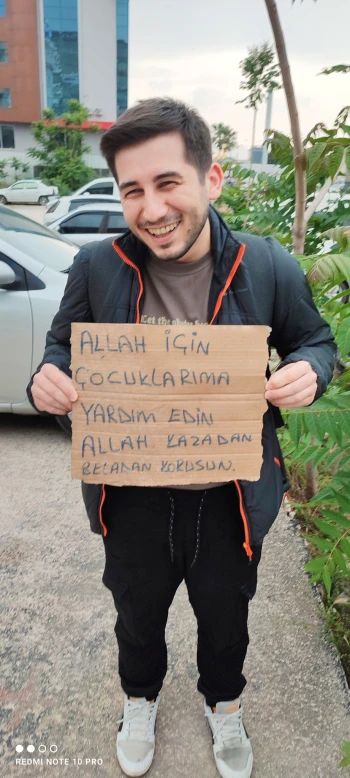 ALLAH İÇİN
ÇOCUKLARIMA
YARDIM EDİN
ALLAH KAZADAN
BELADAN KORUSUN.
REDMI NOTE 10 PRO